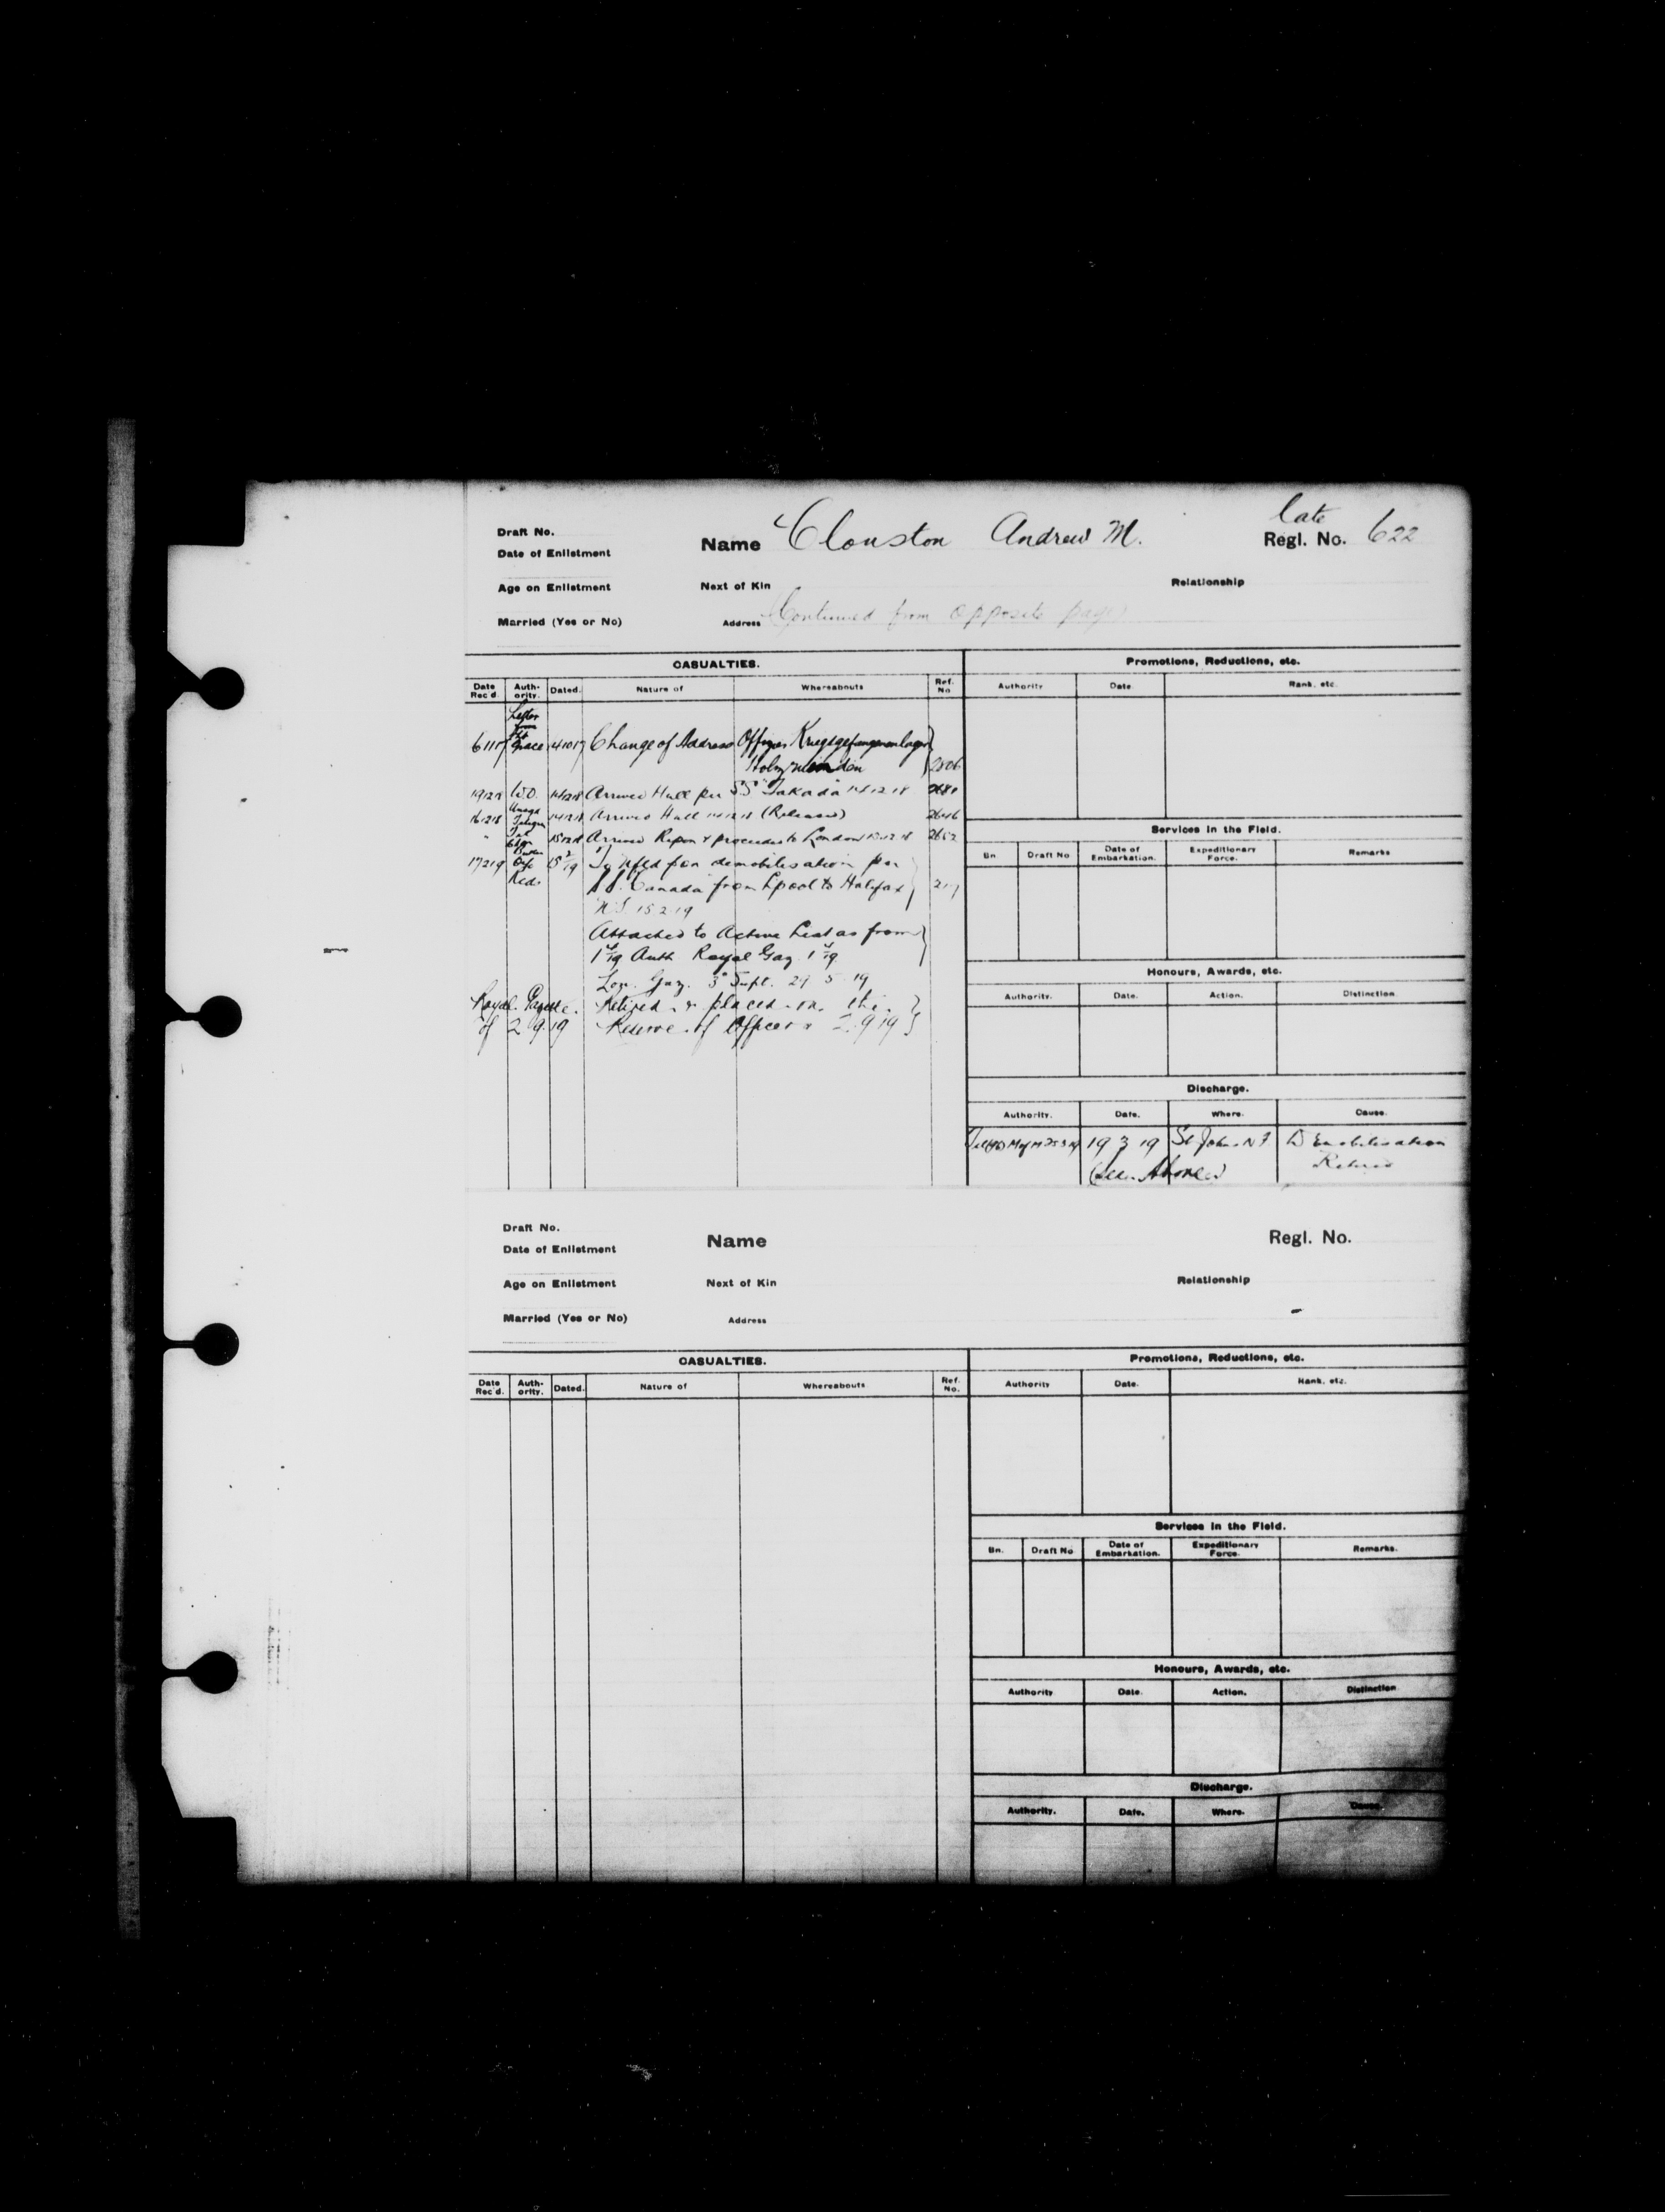 late
Draft No.
Name Clouston Andrew M. Regl. No. 622
Date of Enlistment
Age on Enlistment Next of Kin Relationship
(Continued from opposite page)
Married (Yes or No) Address
CASUALTIES. Promotions, Reductions, etc.
Date Rec'd. Auth-ority. Dated. Nature of Whereabouts Ref. No Authority Date Rank, etc.
Letter
from
6 11 17 Grace 14 10 17 Change of Address Offizier Kriegsgefangenenlager
Holzminden 2506
19 12 18 W.O. 14 12 18 Arrived Hull per SS "Takada" 14 12 18 2681
16 12 18 14 12 18 Arrived Hull 14 12 18 (Released) 2646
" 15 12 18 Arrived Ripon & proceeded to London 2652
Services in the Field.
Bn Draft No Date of Embarkation. Expeditionary Force. Remarks
17 2 19 15 2/19 To Nfld for demobilisation per
Reds S.S. "Canada" from Lpool to Halifax 217
N.S. 15 2 19
Attached to Active List as from
Auth Royal Gaz.
Lon. Gaz. 3rd Supt. 29 5 19
Honours, Awards, etc.
Authority. Date. Action. Distinction
Royal Gazette. Retired & placed on the
of 2 9 19 Reserve of Officers 2.9.19
Discharge.
Authority. Date. Where. Cause.
19 3 19 St John's N F Demobilisation
(See Above) Retired
Draft No.
Name Regl. No.
Date of Enlistment
Age on Enlistment Next of Kin Relationship
Married (Yes or No) Address
CASUALTIES. Promotions, Reductions, etc.
Date Rec'd. Auth-ority. Dated. Nature of Whereabouts Ref. No. Authority Date. Rank, etc.
Services in the Field.
Bn. Draft No Date of Embarkation. Expeditionary Force. Remarks.
Honours, Awards, etc.
Authority Date. Action. Distinction
Discharge.
Authority. Date. Where. Cause.